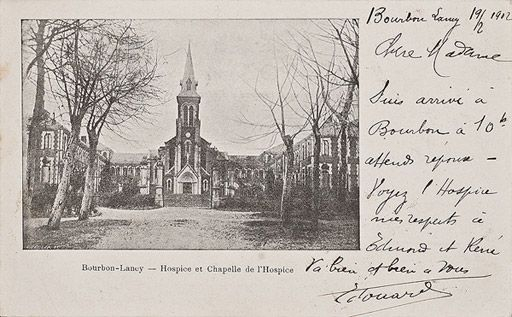 Bourbon Lancy 19/2 1902
Chère Madame
Suis arrivé à
Bourbon à 10h
attends réponse —
Voyez l'Hospice
mes respects à
Edmond et René
Va bien et bien à vous
Edouard
Bourbon-Lancy — Hospice et Chapelle de l'Hospice